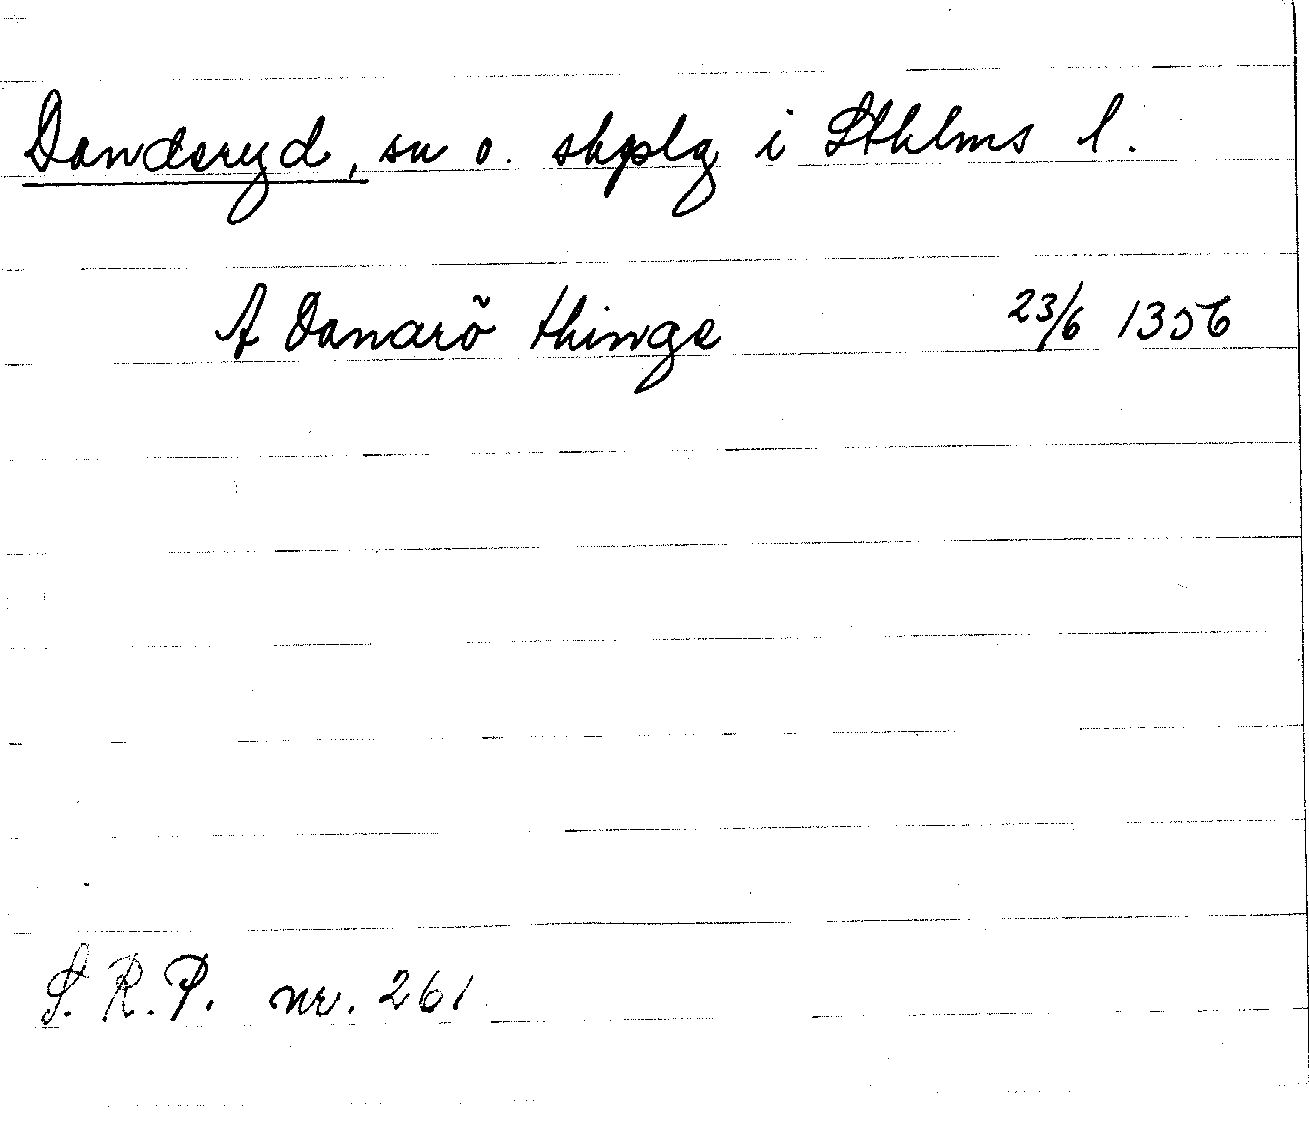 Danderyd, sn o. skplg i Sthlms l.
A Danarö thinge 23/6 1356
S.R.P. nr. 261